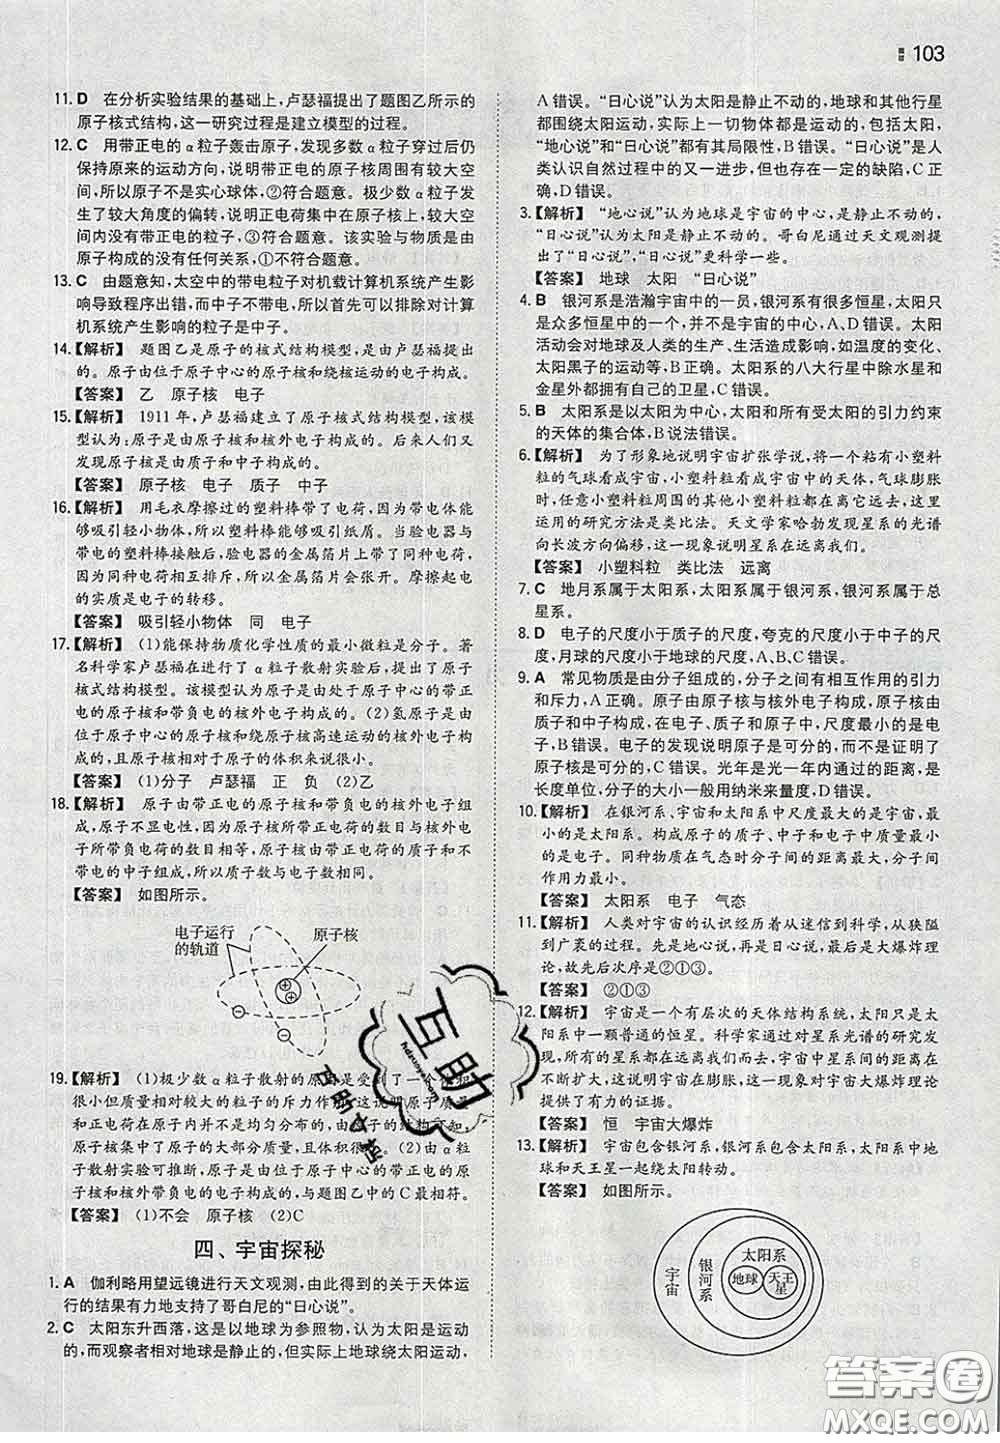 103
11. D 在分析实验结果的基础上,卢瑟福提出了题图乙所示的
原子核式结构,这一研究过程是建立模型的过程。
12. C 用带正电的α粒子轰击原子,发现多数α粒子穿过后仍
保持原来的运动方向,说明带正电的原子核周围有较大空
间,所以原子不是实心球体,②符合题意。极少数α粒子
发生了较大角度的偏转,说明正电荷集中在原子核上,较大
空间内没有带正电的粒子,③符合题意。该实验与物质是由
原子构成的没有任何关系,①不符合题意。
13. C 由题意知,太空中的带电粒子对机载计算机系统产生影
响导致程序出错,而中子不带电,所以首先可以排除对计算
机系统产生影响的粒子是中子。
14.【解析】 题图乙是原子的核式结构模型,是由卢瑟福提出
的。原子由位于原子中心的原子核和绕核运动的电子构成。
【答案】 乙 原子核 电子
15.【解析】 1911年,卢瑟福建立了原子核式结构模型,该模
型认为:原子是由原子核和核外电子构成的。后来人们又
发现原子核是由质子和中子构成的。
【答案】 原子核 电子 质子 中子
16.【解析】 用毛衣摩擦过的塑料棒带了电荷,因为带电体能
够吸引轻小物体,所以塑料棒能够吸引纸屑。当验电器与
带电的塑料棒接触后,验电器的金属箔片上带了同种电荷,
因为同种电荷相互排斥,所以金属箔片会张开。摩擦起电
的实质是电子的转移。
【答案】 吸引轻小物体 同 电子
17.【解析】 (1)能保持物质化学性质的最小微粒是分子。著
名科学家卢瑟福在进行了α粒子散射实验后,提出了原子
核式结构模型。该模型认为原子是由处于原子中心的带正
电的原子核和带负电的核外电子构成的。(2)氢原子是由
位于原子中心的原子核和绕原子核高速运动的核外电子构
成的,且原子核的体积比原子的体积来说很小。
【答案】 (1)分子 卢瑟福 正 负 (2)乙
18.【解析】 原子由带正电的原子核和带负电的核外电子组
成,原子不显电性,因为原子核所带正电荷的数目与核外电
子所带负电荷的数目相等,原子核由带正电的质子和不
带电的中子组成,所以质子数与电子数相同。
【答案】 如图所示。
电子运行
的轨道
原子核
19.【解析】 (1)极少数α粒子散射的原因是受到了
很小但质量相对较大的粒子的斥力作用,这说明原子质量
和正电荷在原子内并不是均匀分布的,由原子的结构可知,
原子核集中了原子的大部分质量,且体积很小。(2)由α粒
子散射实验可推断,原子是由位于原子中心的带正电的原
子核和核外带负电的电子构成的,与题图乙中的C最相符。
【答案】 (1)不会 原子核 (2)C
四、宇宙探秘
1. A 伽利略用望远镜进行天文观测,由此得到的关于天体运
行的结果有力地支持了哥白尼的“日心说”。
2. C 太阳东升西落,这是以地球为参照物,认为太阳是运动
的,而观察者相对地球是静止的,但实际上地球绕太阳运动,
A错误。“日心说”认为太阳是静止不动的,地球和其他行星
都围绕太阳运动,实际上一切物体都是运动的,包括太阳,
“地心说”和“日心说”都有其局限性,B错误。“日心说”是人
类认识自然过程中的又一进步,但也存在一定的缺陷,C正
确,D错误。
3.【解析】 “地心说”认为地球是宇宙的中心,是静止不动的,
“日心说”认为太阳是静止不动的。哥白尼通过天文观测提
出了“日心说”,“日心说”更科学一些。
【答案】 地球 太阳 “日心说”
4. B 银河系是浩瀚宇宙中的一员,银河系有很多恒星,太阳只
是众多恒星中的一个,并不是宇宙的中心,A、D错误。太阳
活动会对地球及人类的生产、生活造成影响,如温度的变化、
太阳黑子的运动等,B正确。太阳系的八大行星中除水星和
金星外都拥有自己的卫星,C错误。
5. B 太阳系是以太阳为中心,太阳和所有受太阳的引力约束
的天体的集合体,B说法错误。
6.【解析】 为了形象地说明宇宙扩张学说,将一个粘有小塑料
粒的气球看成宇宙,小塑料粒看成宇宙中的天体,气球膨胀
时,任意小塑料粒周围的其他小塑料粒都在离它远去,这里
运用的研究方法是类比法。天文学家哈勃发现星系的光谱
向长波方向偏移,这一现象说明星系在远离我们。
【答案】 小塑料粒 类比法 远离
7. C 地月系属于太阳系,太阳系属于银河系,银河系属于总
星系。
8. D 电子的尺度小于质子的尺度,夸克的尺度小于中子的尺
度,月球的尺度小于地球的尺度,A、B、C错误。
9. A 常见物质是由分子组成的,分子之间有相互作用的引力
和斥力,A正确。原子由原子核与核外电子构成,原子核由
质子和中子构成,在电子、质子和原子中,尺度最小的是电
子,B错误。电子的发现说明原子是可分的,而不是证明了
原子核是可分的,C错误。光年是光一年内通过的距离,是
长度单位,分子的大小一般用纳米来量度,D错误。
10.【解析】 在银河系、宇宙和太阳系中尺度最大的是宇宙,最
小的是太阳系。构成原子的质子、中子和电子中质量最小
的是电子。同种物质在气态时分子间的距离最大,分子间
作用力最小。
【答案】 太阳系 电子 气态
11.【解析】 人类对宇宙的认识经历着从迷信到科学,从狭隘
到广袤的过程。先是地心说,再是日心说,最后是大爆炸理
论,故先后次序是②①③。
【答案】 ②①③
12.【解析】 宇宙是一个有层次的天体结构系统,太阳只是太
阳系中一颗普通的恒星。科学家通过对星系光谱的研究发
现,所有的星系都在远离我们而去,宇宙中星系间的距离在
不断扩大,这说明宇宙在膨胀,这一现象给宇宙大爆炸理论
提供了有力的证据。
【答案】 恒 宇宙大爆炸
13.【解析】 宇宙包含银河系,银河系包含太阳系,太阳系中地
球和天王星一起绕太阳转动。
【答案】 如图所示。
宇宙
银河系
太阳系
地球
天王星
互助
答案圈
MXQE.COM